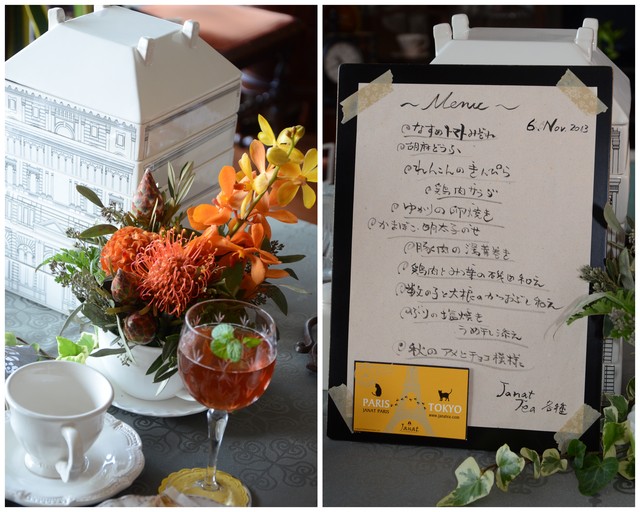 ～Menu～
6. Nov. 2013
なすのトマトみぞれ
胡麻どうふ
れんこんのきんぴら
鶏肉
ゆかりの卵焼き
かまぼこ、明太子のせ
豚肉の浅黄巻き
鶏肉と
数の子と大根のかつおぶし和え
ぶりの塩焼き
うめ干し添え
秋のアメとチョコ模様。
Janat
Tea 各種
PARIS
JANAT PARIS
TOKYO
JANAT